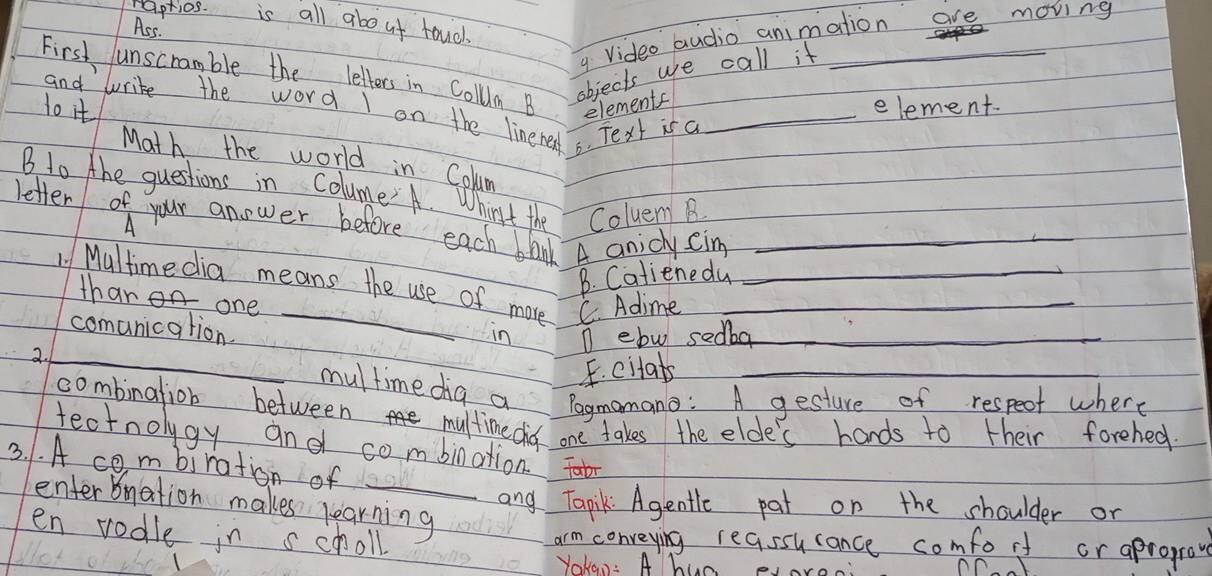 Haptios. is all about touch.
Ass.
First, unscramble the letters in Collum B
and write the word on the line next
to it
Math the world in Colum
B to the questions in Colume A. Whirst the
letter of your answer before each blank
A
1. Multimedia means the use of more
than one in
comunication.
2. multimedia a
combination between multimedia
tectnolygy and combination
3. A combination of and
enterbmation makes learning
en vodle in scholl
4 Video audio animation are moving
objects we call it
elements
5. Text is a element.
Coluem B.
A anidy cim
B. Catienedu
C. Adime
D ebw sedba
E. citats
Pagmamano: A gesture of respect where
one takes the elde's hands to their forehed.
Tapik: A gentle pat on the shoulder or
arm conveying reassurance comfort or
Yakap: A hug